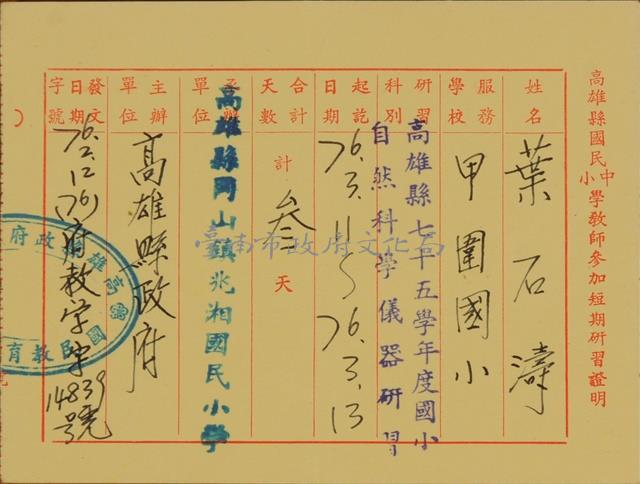 高雄縣國民中小學教師參加短期研習證明
姓名
葉石濤
服務學校
甲圍國小
研習科別
高雄縣七十五學年度國小
自然科學儀器研習
起訖日期
76.3.11~76.3.13
合計天數
計叁天
承辦單位
高雄縣岡山鎮兆湘國民小學
主辦單位
高雄縣政府
發文日期字號
76.2.12(76)府教学字14839號
臺南市政府文化局